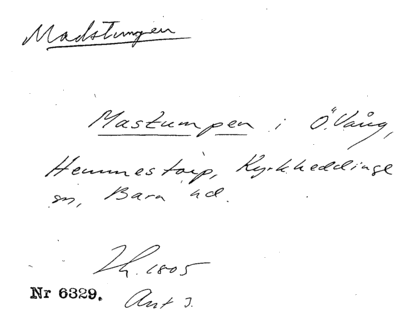 Madstungen
Mastumpen i Ö. Vång,
Hemmestorp, Kyrkheddinge
sn, Bara hd.
Lh. 1805
Nr 6329. Akt 3.